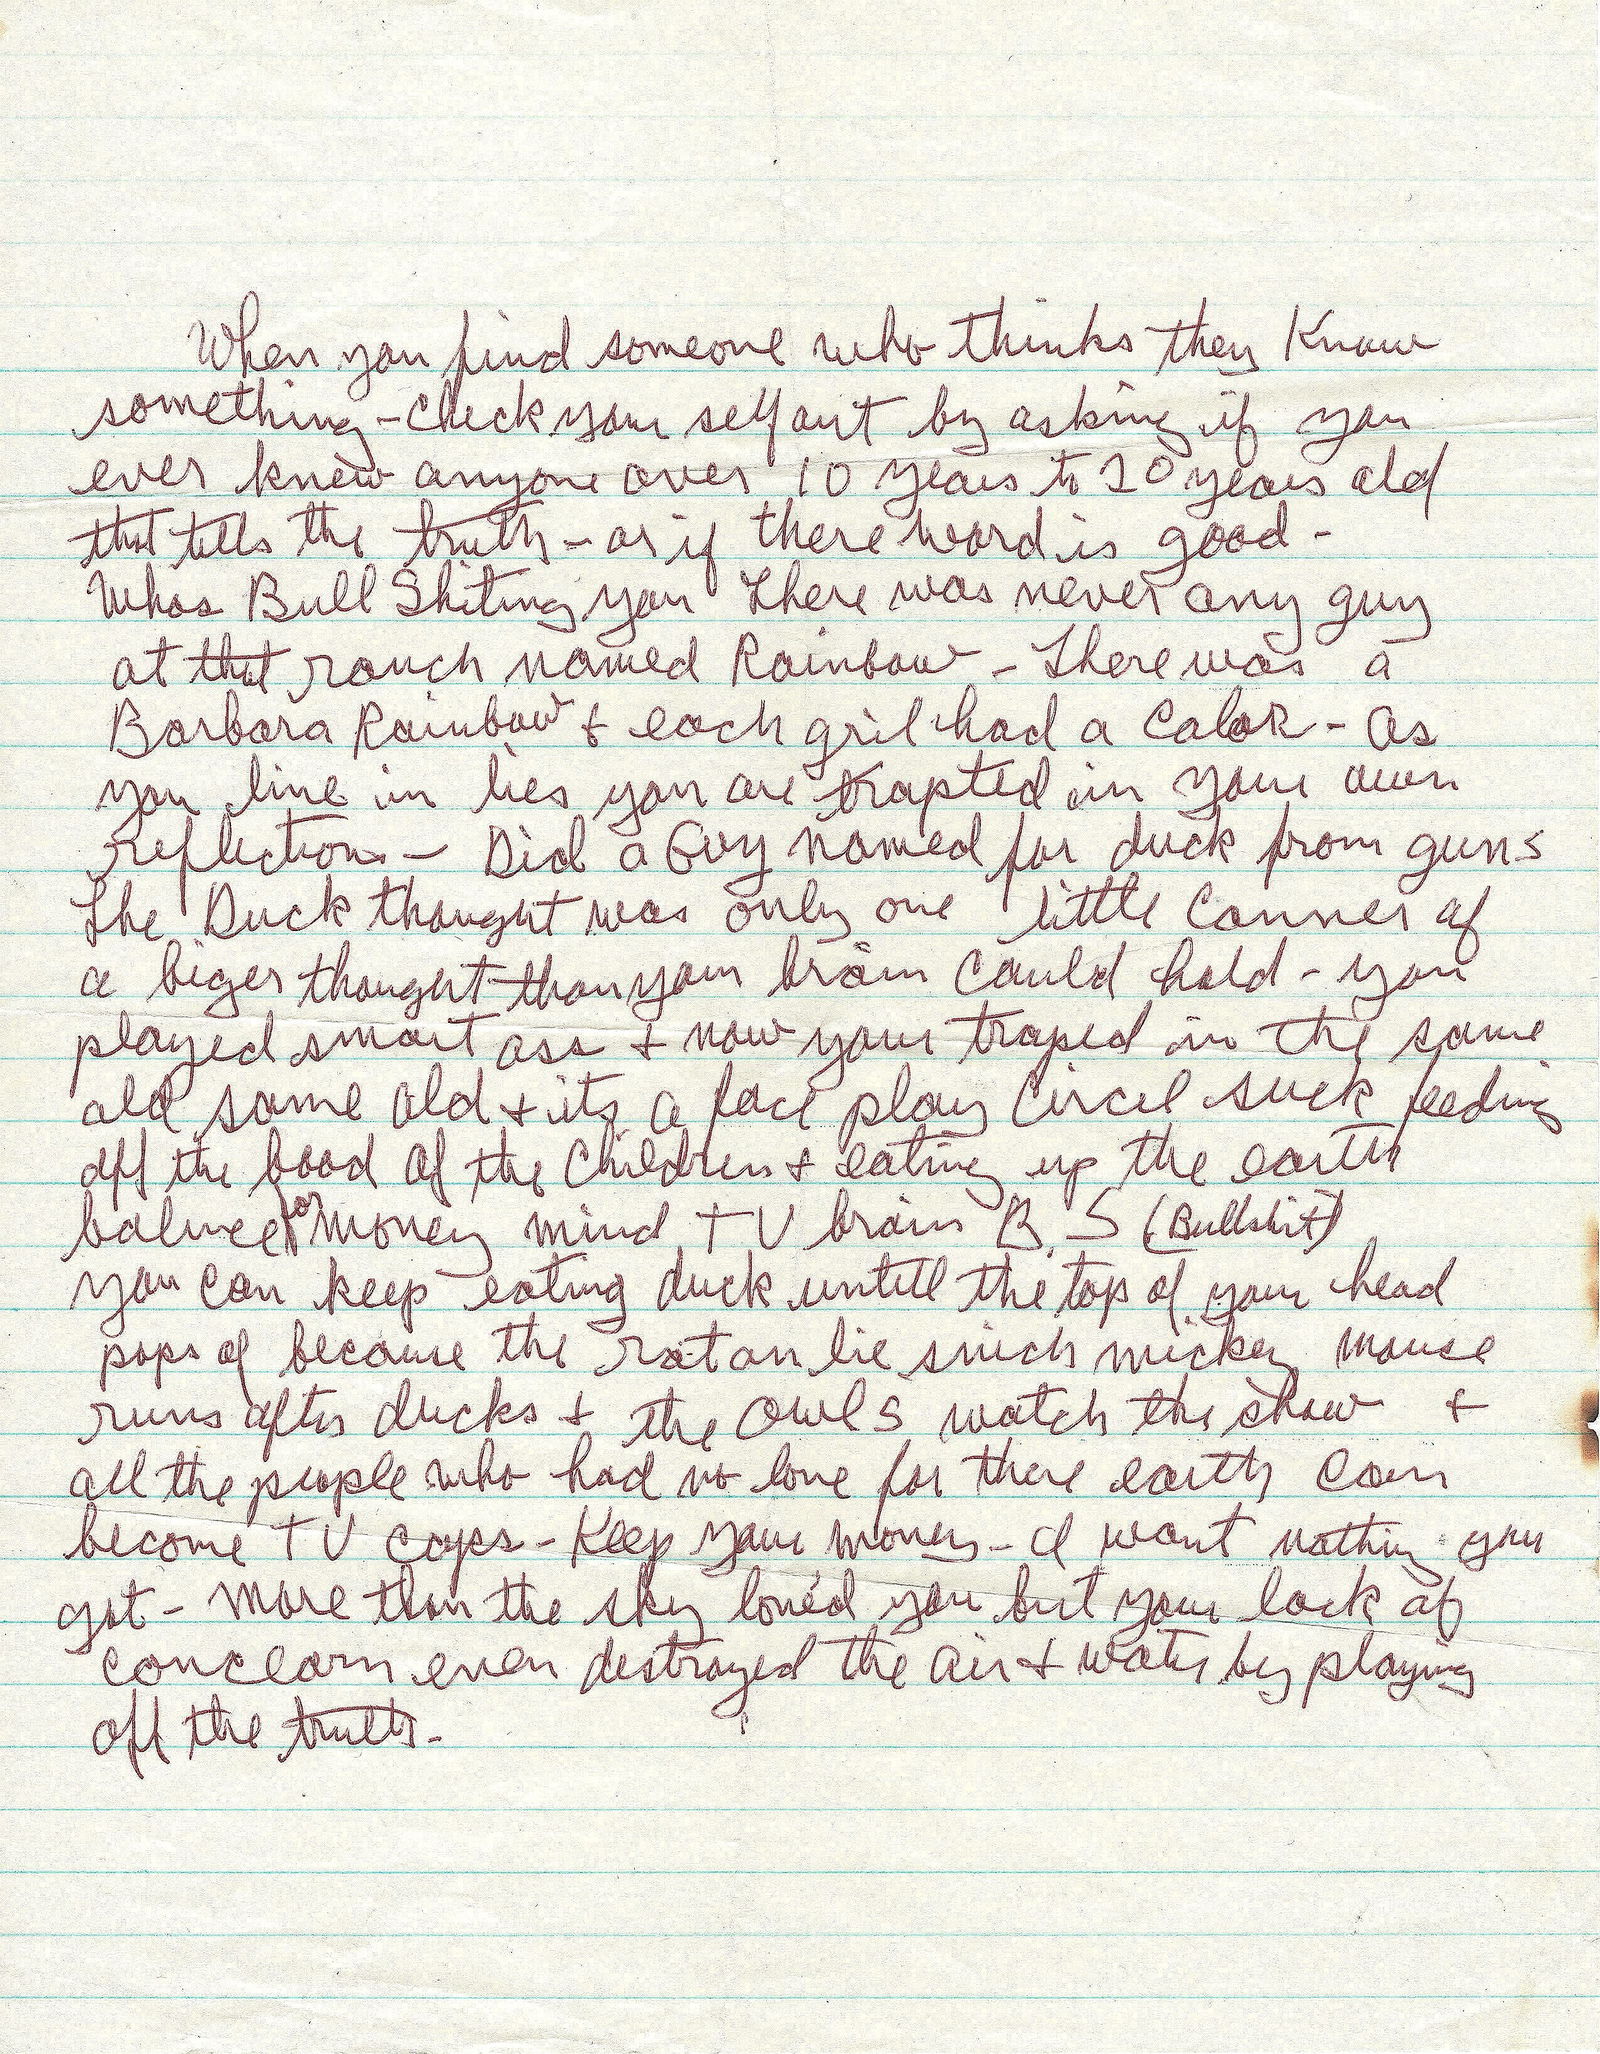 When you find someone who thinks they Know
something - Check your self out by asking if you
ever knew anyone over 10 years to 20 years old
that tells the truth - or if there word is good -
Whos Bull Shiting you There was never any guy
at that ranch named Rainbow - There was a
Barbara Rainbow & each gril had a Color - As
you live in lies you are trapted in your own
reflections - Did a Guy named for duck from guns
The Duck thought was only one little Conner of
a biger thought than your brain Could hold - you
played smart ass + now your traped in the same
old same old + its a face play Circel suck feeding
off the bood of the Children + eating up the earth
balnce for money mind TV brain B.S (Bullshit)
you can keep eating duck untill the top of your head
pops of because the rat on lie snich mickey mouse
runs after ducks + the owls watch the show +
all the people who had no love for there earth can
become TV cops - Keep your money - I want nothing you
got - more than the sky loved you but your lack of
concearn even destroyed the air + water by playing
off the truth -